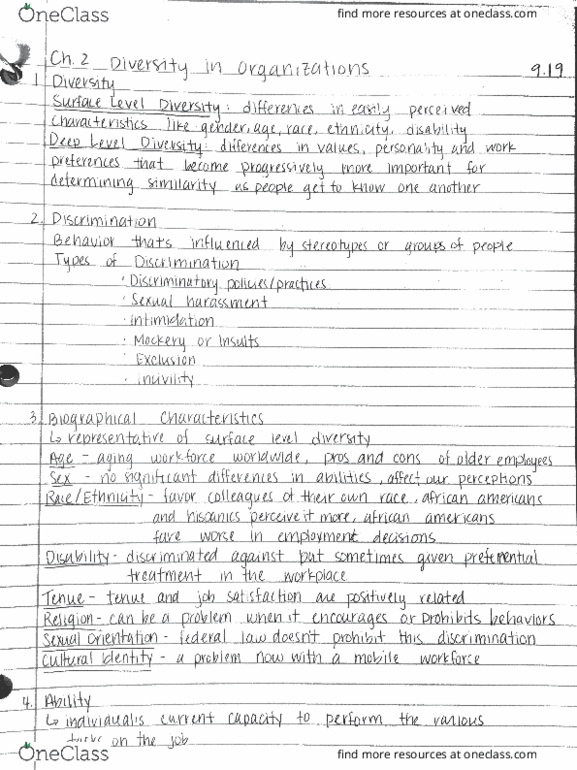 OneClass
find more resources at oneclass.com
Ch. 2 Diversity in Organizations 9.19
1. Diversity
Surface Level Diversity: differences in easily perceived
Characteristics like gender, age, race, ethnicity, disability
Deep Level Diversity: differences in values, personality and work
preferences that become progressively more important for
determining similarity as people get to know one another
2. Discrimination
Behavior that's influenced by stereotypes or groups of people
Types of Discrimination
· Discriminatory policies/practices
· Sexual harassment
· intimidation
· Mockery or Insults
· Exclusion
· incivility
3. Biographical Characteristics
↳ representative of surface level diversity
Age - aging workforce worldwide, pros and cons of older employees
Sex - no significant differences in abilities, affect our perceptions
Race/Ethnicity - favor colleagues of their own race, african americans
and hispanics perceive it more, african americans
fare worse in employment decisions
Disability - discriminated against but sometimes given preferential
treatment in the workplace
Tenue - tenue and job satisfaction are positively related
Religion - can be a problem when it encourages or prohibits behaviors
Sexual Orientation - federal law doesn't prohibit this discrimination
Cultural Identity - a problem now with a mobile workforce
4. Ability
↳ individual's current capacity to perform the various
tasks on the job
OneClass
find more resources at oneclass.com